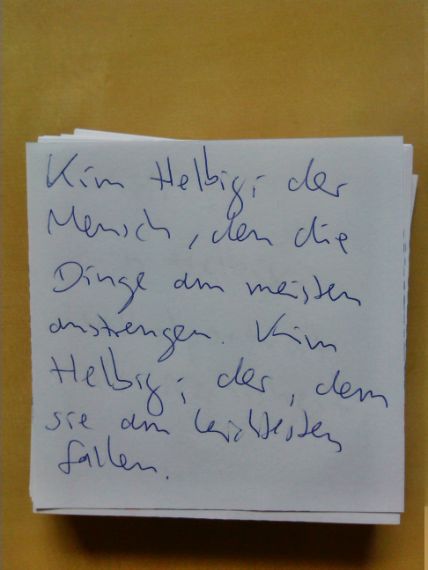 Kim Helbig; der
Mensch, den die
Dinge am meisten
anstrengen. Kim
Helbig; der, dem
sie am leichtesten
fallen.